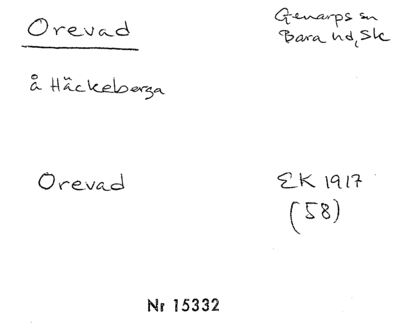 Orevad
Genarps sn
Bara hd, Sk
å Häckeberga
Orevad
EK 1917
(58)
Nr 15332